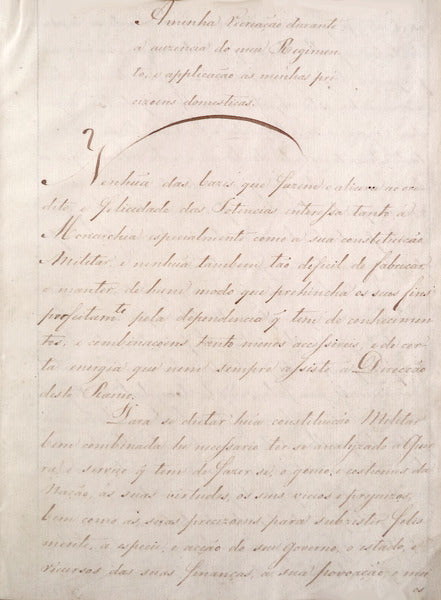 A minha Recriação durante
a auzensa do meu Regimen
to, e applicação ás minhas pri
cizoens domesticas.
Nenhũa das bazes que fazem e alicera ao cre
dito, e felicidade das Potencias interessa tanto a
Monarchia especialmente como a sua constituição
Militar e nenhũa tambem tão dificil de fabricar,
e manter, de hum modo que prehincha os seus fins
profeitam.to pela dependencia q̃ tem de conhecimen
tos, e combinaçoens tanto menos accessiveis, e de cer
ta energia que nem sempre assiste a Direcção
deste Ramo.
Para se dictar hũa constituição Militar
bem combinada he necessario ter se analizado a Guer
ra, e serviço q̃ tem de fazer se, o genio, e costumes da
Nação, as suas virtudes, os seus vicios e prejuizos,
bem como as suas precizoens para subzistir feliz
mente, a especie, e acção do seu governo, o estado, e
recursos das suas finanças, a sua povoação, e